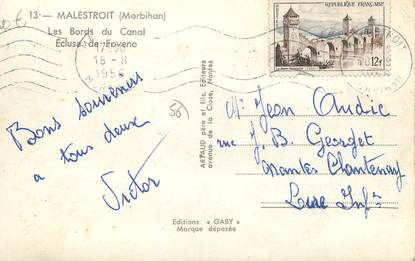 13 - MALESTROIT (Morbihan)
Les Bords du Canal
Ecluse de Foveno
18-8
1956
RÉPUBLIQUE FRANÇAISE
12f
Bons souvenirs
a tous deux
Victor
56
ARTAUD père et fils, Editeurs
avenue de la Close, Nantes
Mr Jean Audic
rue J. B. Georget
Nantes Chantenay
Loire Infre
Editions « GABY »
Marque déposée